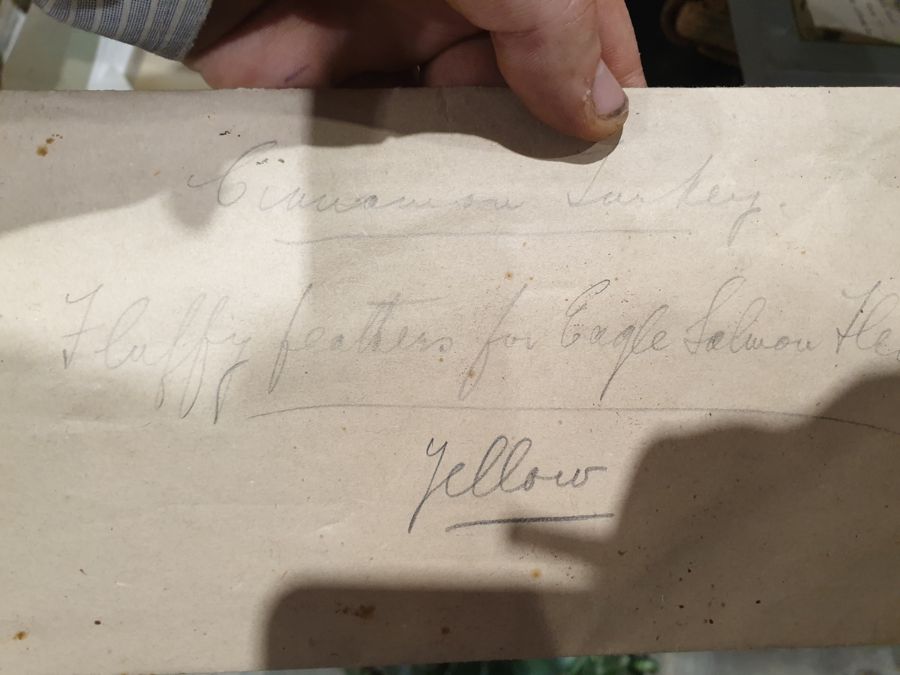 Cinnamon Turkey.
Fluffy feathers for Eagle Salmon
Yellow